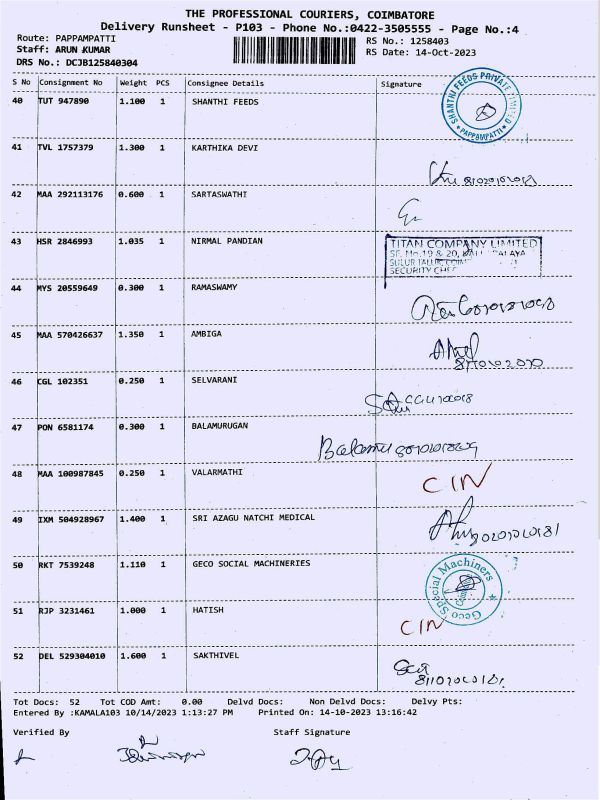 THE PROFESSIONAL COURIERS, COIMBATORE
Delivery Runsheet - P103 - Phone No.:0422-3505555 - Page No.:4
Route: PAPPAMPATTI RS No.: 1258403
Staff: ARUN KUMAR RS Date: 14-Oct-2023
DRS No.: DCJB125840304
S No Consignment No Weight PCS Consignee Details Signature
40 TUT 947890 1.100 1 SHANTHI FEEDS
SHANTHI FEEDS PRIVATE LIMITED * PAPPAMPATTI *
41 TVL 1757379 1.300 1 KARTHIKA DEVI
42 MAA 292113176 0.600 1 SARTASWATHI
43 HSR 2846993 1.035 1 NIRMAL PANDIAN
TITAN COMPANY LIMITED
SF. No.19 & 20,
SULUR TALUK,
SECURITY
44 MYS 20559649 0.300 1 RAMASWAMY
45 MAA 570426637 1.350 1 AMBIGA
46 CGL 102351 0.250 1 SELVARANI
47 PON 6581174 0.300 1 BALAMURUGAN
Balamu
48 MAA 100987845 0.250 1 VALARMATHI
CIN
49 IXM 504928967 1.400 1 SRI AZAGU NATCHI MEDICAL
50 RKT 7539248 1.110 1 GECO SOCIAL MACHINERIES
Geco Special Machiners
51 RJP 3231461 1.000 1 HATISH
CIN
52 DEL 529304010 1.600 1 SAKTHIVEL
Tot Docs: 52 Tot COD Amt: 0.00 Delvd Docs: Non Delvd Docs: Delvy Pts:
Entered By :KAMALA103 10/14/2023 1:13:27 PM Printed On: 14-10-2023 13:16:42
Verified By Staff Signature